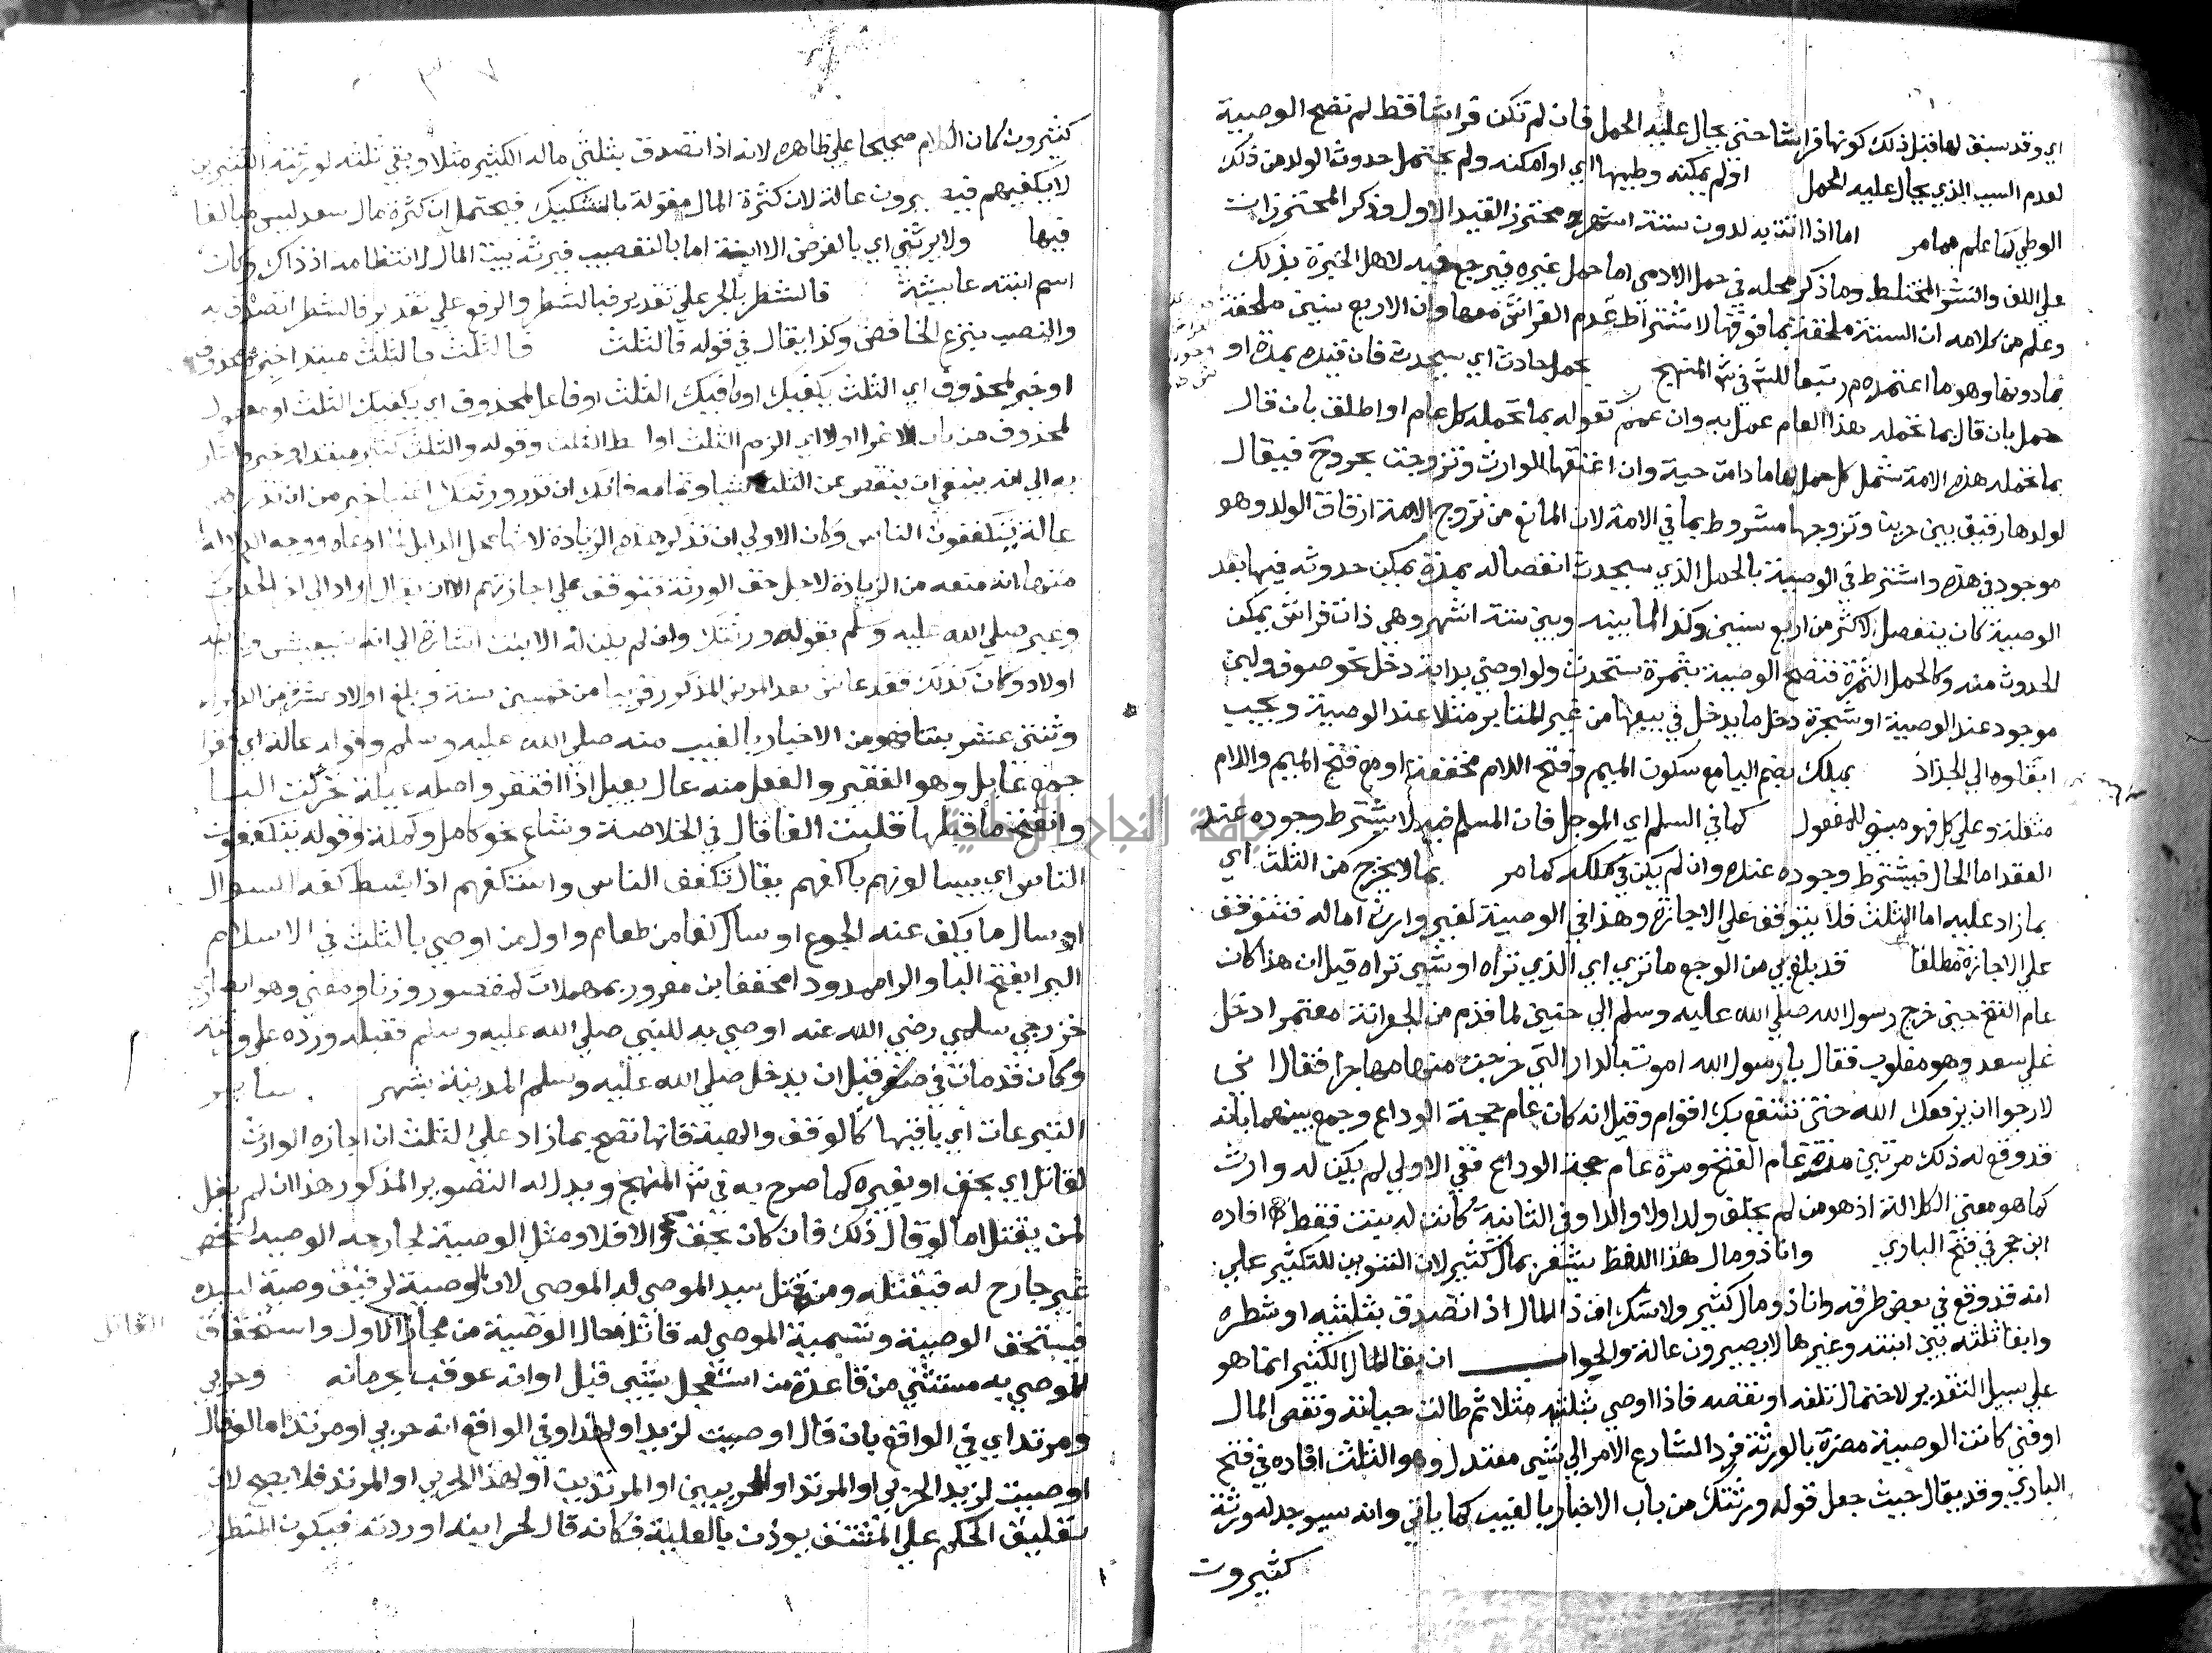 اي وقد سبق لها قبل ذلك كونها فراشا حتي يحال عليه الحمل فان لم تكن فراشا قط لم تصح الوصية
لعدم السبب الذي يحال عليه الحمل اولم يمكنه وطيها اي او امكنه ولم يحتمل حدوث الولد من ذلك
الوطي كما علم مما مر اما اذا اتت به لدون ستة اشهر محترز القيد الاول وذكر المحترزات
علي اللف والنشر المختلط وما ذكر محله في حمل الادمي اما حمل غيره فيرجع فيه لاهل الخبرة بذلك
وعلم من كلامه ان الستة ملحقة بما فوقها لاشتراط عدم الفراش معها وان الاربع سنين ملحقة
بما دونها وهو ما اعتمده م ر تبعا للش في ش المنهج بحمل حادث اي سيحدث فان قيده بمدة او
حمل بان قال بما تحمله هذا العام عمل به وان عمم كقوله بما تحمله كل عام او اطلق بان قال
بما تحمله هذه الامة شمل كل حمل لها ما دامت حية وان اعتقها الوارث وتزوجت بحر وح فيقال
لولدها رقيق بين حرين وتزوجها مشروط بما في الامة لان المانع من تزوج الامة ارقاق الولد وهو
موجود في هذه واشترط في الوصية بالحمل الذي سيحدث انفصاله بمدة يمكن حدوثه فيها بعد
الوصية كان ينفصل لاكثر من اربع سنين وكذا لما بينه وبين ستة اشهر وهي ذات فراش يمكن
الحدوث منه وكالحمل الثمرة فتصح الوصية بثمرة ستحدث ولو اوصي بدابة دخل نحو صوف ولبن
موجود عند الوصية او شجرة دخل ما يدخل في بيعها من غير المتابر مثلا عند الوصية ويجب
ابقاوه الي الجذاذ يملك بضم اليا مع سكون الميم وفتح اللام مخففة او مع فتح الميم واللام
مثقلة وعلي كل فهو مبني للمفعول كما في السلم اي الموجل فان المسلم فيه لا يشترط وجوده عند
العقد اما الحال فيشترط وجوده عنده وان لم يكن في ملكه كما مر بما لا يخرج من الثلث اي
بما زاد عليه اما الثلث فلا يتوقف علي الاجازة وهذا في الوصية لغير وارث اما له فتتوقف
علي الاجازة مطلقا قد بلغ بي من الوجع ما تري اي الذي تراه او شي تراه قيل ان هذا كان
عام الفتح حين خرج رسول الله صلي الله عليه وسلم الي حنين لما قدم من الجعرانة معتمرا دخل
علي سعد وهو مغلوب فقال يا رسول الله اموت بالدار التي خرجت منها مهاجرا فقال اني
لارجوا ان يرفعك الله حتي ينتفع بك اقوام وقيل انه كان عام حجة الوداع وجمع بينهما بانه
قد وقع له ذلك مرتين مرة عام الفتح ومرة عام حجة الوداع ففي الاولي لم يكن له وارث
كما هو معني الكلالة اذ هو من لم يخلف ولدا ولا والدا وفي الثانية كانت له بنت فقط افاده
ابن حجر في فتح الباري وانا ذو مال هذا اللفظ يشعر بمال كثير لان التنوين للتكثير علي
انه قد وقع في بعض طرقه وانا ذو مال كثير ولا شك ان ذا المال اذا تصدق بثلثيه او شطره
وابقا ثلثه بين ابنته وغيرها لا يصيرون عالة والجواب ان يقال المال الكثير انما هو
علي سبيل التقدير لاحتمال تلفه او نقصه فاذا اوصي بثلثيه مثلا ثم طالت حياته ونقص المال
او فني كانت الوصية مضرة بالورثة فرد الشارع الامر الي شي معتدل وهو الثلث افاده في فتح
الباري وقد يقال حيث جعل قوله ورثتك من باب الاخبار بالغيب كما ياتي وانه سيوجد له ورثة
كثيرون
كثيرون كان الكلام صحيحا علي ظاهره لانه اذا تصدق بثلثي ماله الكثير مثلا وبقي ثلثه لورثته الكثيرين
لا يكفيهم فيصيرون عالة لان كثرة المال مقولة بالتشكيك فيحتمل ان كثرة مال سعد ليس مبالغا
فيها ولا يرثني اي بالفرض الا ابنة اما بالتعصيب فيرثه بيت المال لانتظامه اذ ذاك وكان
اسم ابنته عايشة فالشطر بالجر علي تقدير فبالشطر والرفع علي تقدير فالشطر اتصدق به
والنصب بنزع الخافض وكذا يقال في قوله فالثلث قال الثلث فالثلث مبتدا خبره محذوف
او خبر لمحذوف اي الثلث يكفيك او كافيك الثلث او فاعل لمحذوف اي يكفيك الثلث او مفعول
لمحذوف من باب الاغرا اولا اي الزم الثلث او اعط الثلث وقوله والثلث كثير مبتدا وخبره اشار
به الي انه ينبغي ان ينقص عن الثلث شيا وتمامه فانك ان تذر ورثتك اغنيا خير من ان تذرهم
عالة يتكففون الناس وكان الاولي ان تذكر هذه الزيادة لانها محل الدليل لما ادعاه ووجه الدلالة
منها انه منعه من الزيادة لاجل حق الورثة فتوقف علي اجازتهم
وعبر صلي الله عليه وسلم بقوله ورثتك وان لم يكن له الا بنت اشارة الي انه سيعيش وياتيه
اولاد وكان كذلك فقد عاش بعد المرض المذكور قريبا من خمسين سنة وبلغ اولاده عشرة من الذكور
وثنتي عشر بنتا فهو من الاخبار بالغيب منه صلي الله عليه وسلم وقوله عالة اي فقرا
جمع عايل وهو الفقير والفعل منه عال يعيل اذا افتقر واصله عيلة تحركت اليا
وانفتح ما قبلها قلبت الفا قال في الخلاصة وشاع نحو كامل وكملة وقوله يتكففون
الناس اي يسالونهم باكفهم يقال تكفف الناس واستكفهم اذا بسط كفه للسوال
او سال ما يكف عنه الجوع او سال كفا من طعام واول من اوصي بالثلث في الاسلام
البرا بفتح البا والرا ممدودا مخففا بن معرور بمهملات كمنصور وزنا ومعني وهو انصاري
خزرجي سلمي رضي الله عنه اوصي به للنبي صلي الله عليه وسلم فقبله ورده علي ورثته
وكان قد مات في صفر قبل ان يدخل صلي الله عليه وسلم المدينة بشهر ساير
التبرعات اي باقيها كالوقف والهبة فانها تصح بما زاد علي الثلث ان اجازه الوارث
لقاتل اي بحق او بغيره كما صرح به في ش المنهج ويدل له التصوير المذكور هذا ان لم يقل
لمن يقتل اما لو قال ذلك فان كان بحق صح والا فلا ومثل الوصية لجارحه الوصية لشخص
غير جارح له فيقتله ومن قتل سيد الموصي له الموصي لان الوصية لرقيق وصية لسيده
فيستحق الوصية وتسمية الموصي له قاتلا حال الوصية من مجاز الاول واستحقاق القاتل
للموصي به مستثني من قاعدة من استعجل بشي قبل اوانه عوقب بحرمانه وحربي
ومرتد اي في الواقع بان قال اوصيت لزيد او لهذا وفي الواقع انه حربي او مرتد اما لو قال
اوصيت لزيد الحربي او المرتد او للحربيين او المرتدين او لهذا الحربي او المرتد فلا يصح لان
تعليق الحكم علي المشتق يوذن بالعلية فكانه قال لحرابته او ردته فيكون المنظور